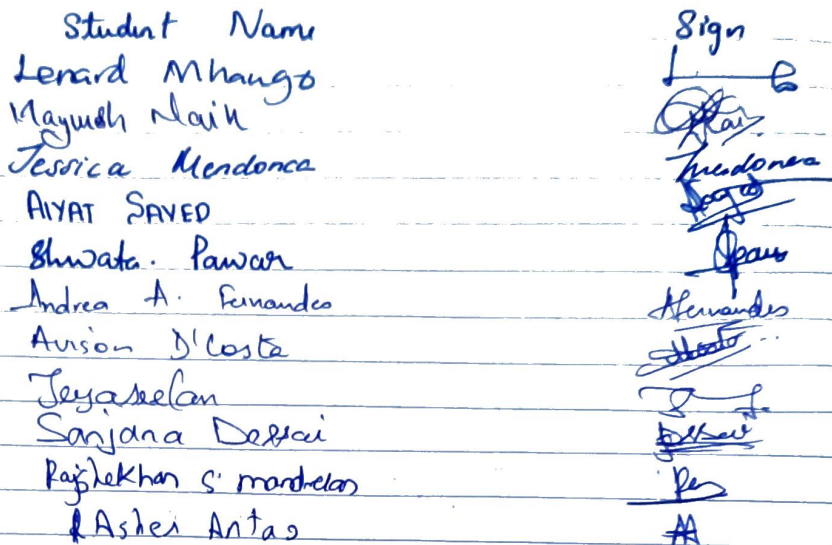 Student Name Sign
Lenard Mhango
Mayuush Naik
Jessica Mendonca Jmendonca
AIYAT SAYED
Shwata. Pawar
Andrea A. Fernandes AFernandes
Avison D'Costa
Jeyaseelan
Sanjana Dessai
S.
Ashei Antao AA